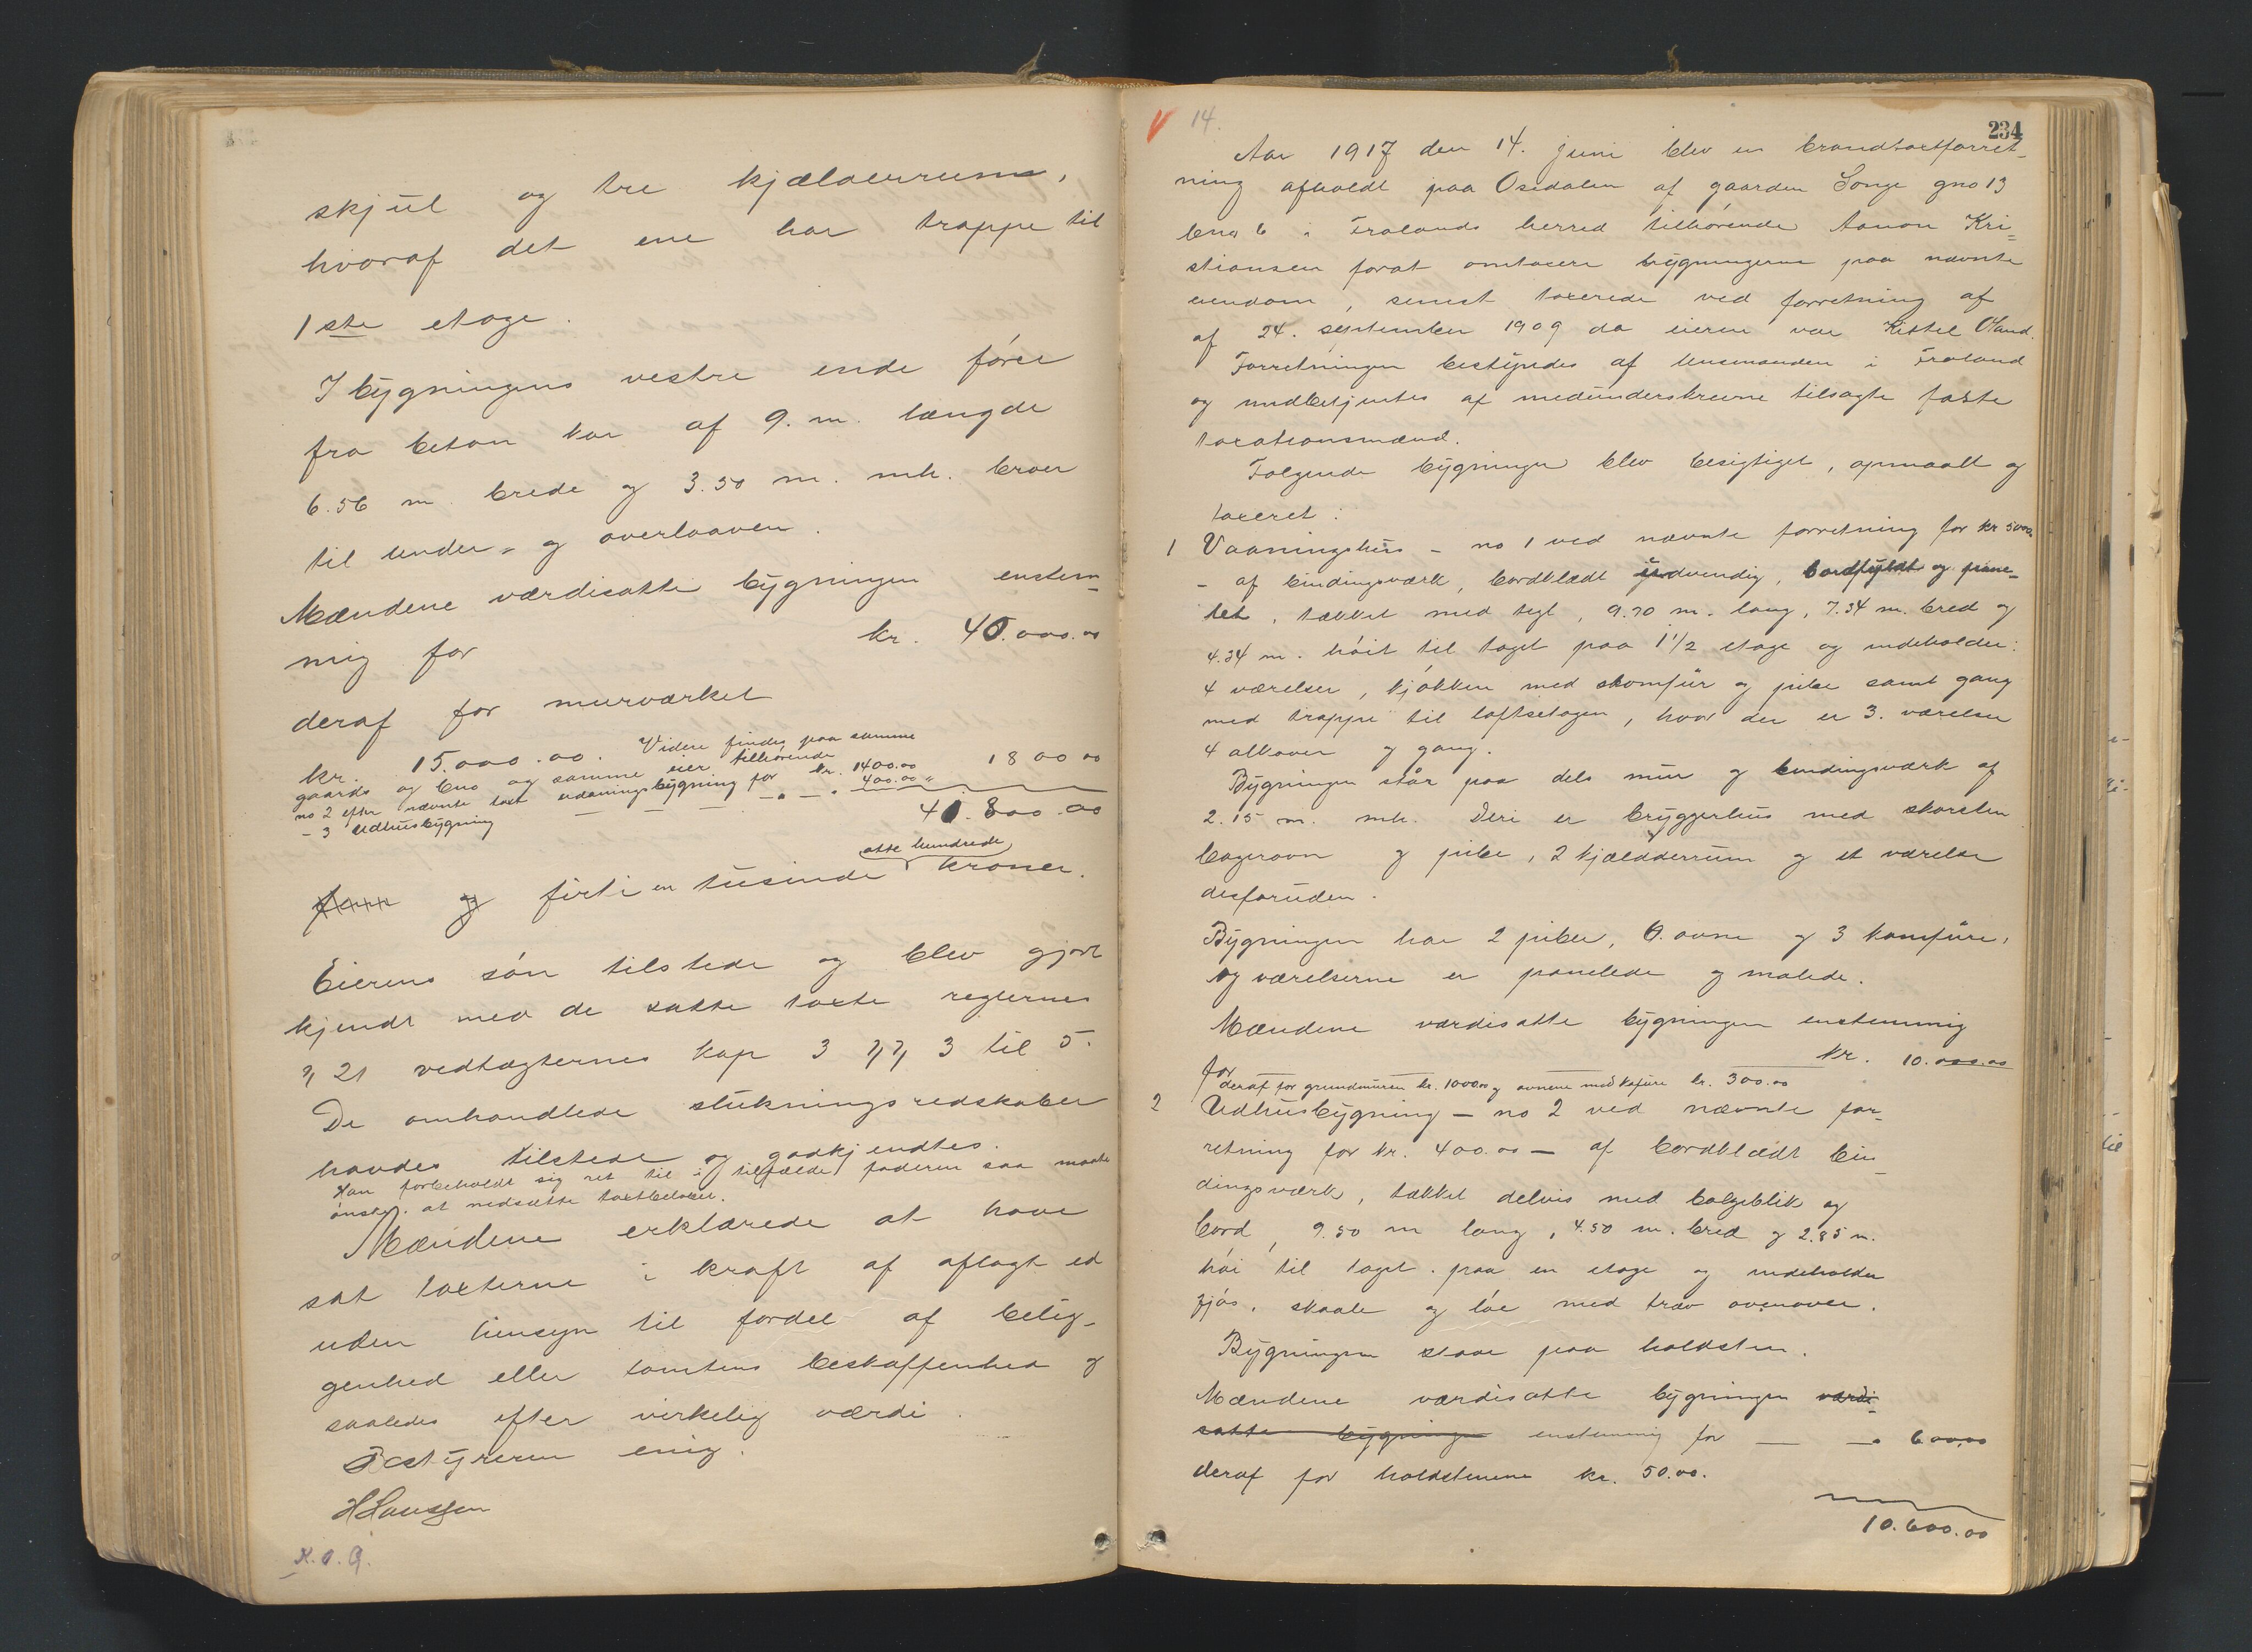 skjul og tre kjælderrum,
hvoraf det ene har trappe til
1ste etage.
I bygningens vestre ende fører
fra beton kar af 9. m. længde
6.56 m. brede og 3.50 m. mh. broer
til under- og overlaaven.
Mændene værdisatte bygningen enstem-
mig for kr. 40.000.00
deraf for murværket
kr. 15.000.00. Videre findes paa samme
gaards og bno og samme eier tilhørende 1800 00
no 2 efter nævnte taxt vaaningsbygning for kr. 1400.00
- 3 Udhusbygning — — — " — " 400.00 "
41.800.00
otte hundrede
og firti en tusinde kroner.
Eierens søn tilstede og blev gjort
kjendt med de satte taxte reglernes
§ 21 vedtægternes kap 3 §§ 3 til 5.
De omhandlede slukningsredskaber
havdes tilstede og godkjendtes.
Han forbeholdt sig ret til i tilfælde faderen saa maatte
ønske, at nedsætte taxtbeløbet.
Mændene erklærede at have
sat taxterne i kraft af aflagt ed
uden hensyn til fordel af belig-
genhed eller tomtens beskaffenhed og
saaledes efter virkelig værdi.
Bestyreren enig.
H Laussen
K.O.G.
V 14. 234
Aar 1917 den 14. juni blev en brandtaxtforret-
ning afholdt paa Osedalen af gaarden Songe gno 13
bno 6 i Frolands herred tilhørende Aanon Kri=
stiansen forat omtaxere bygningerne paa nævnte
eiendom, senest taxerede ved forretning af
af 24. september 1909 da eieren var Kittel Oland.
Forretningen bestyredes af lensmanden i Froland
og medbetjentes af medunderskrevne tilsagte faste
taxationsmænd.
Følgende bygninger blev besigtiget, opmaalt og
taxeret:
1 Vaaningshus - no 1 ved nævnte forretning for kr 5000
- af bindingsværk, bordklædt udvendig, bordfyldt og pane-
let, tækket med tegl, 9.70 m. lang, 7.34 m. bred og
4.34 m. høit til taget paa 1 1/2 etage og indeholder:
4 værelser, kjøkken med skomfür og pibe samt gang
med trappe til loftsetagen, hvor der er 3. værelser
4 alkover og gang.
Bygningen står paa dels mur og bindingsværk af
2.15 m. mh. Deri er bryggerhus med skorsten
bagerovn og pibe, 2 kjælderrum og et værelse
desforuden.
Bygningen har 2 piber, 6. ovne og 3 komfüre,
og værelserne er panelede og malede.
Mændene værdisatte bygningen enstemmig
for kr. 10.000.00
deraf for grundmuren kr. 1000.00 og ovnene med kofüre kr. 300.00
2 Udhusbygning - no 2 ved nævnte for-
retning for kr. 400.00 - af bordklædt bin-
dingsværk, tækket delvis med bølgeblik og
bord, 9.50 m lang, 4.50 m. bred og 2.85 m.
høi til taget. paa en etage og indeholder
fjøs, skaale og løe med træv ovenover.
Bygningen staar paa holdsten.
Mændene værdisatte bygningen værdi-
satte bygningen enstemmig for — — " 600.00
deraf for holdstenene kr. 50.00.
10.600.00